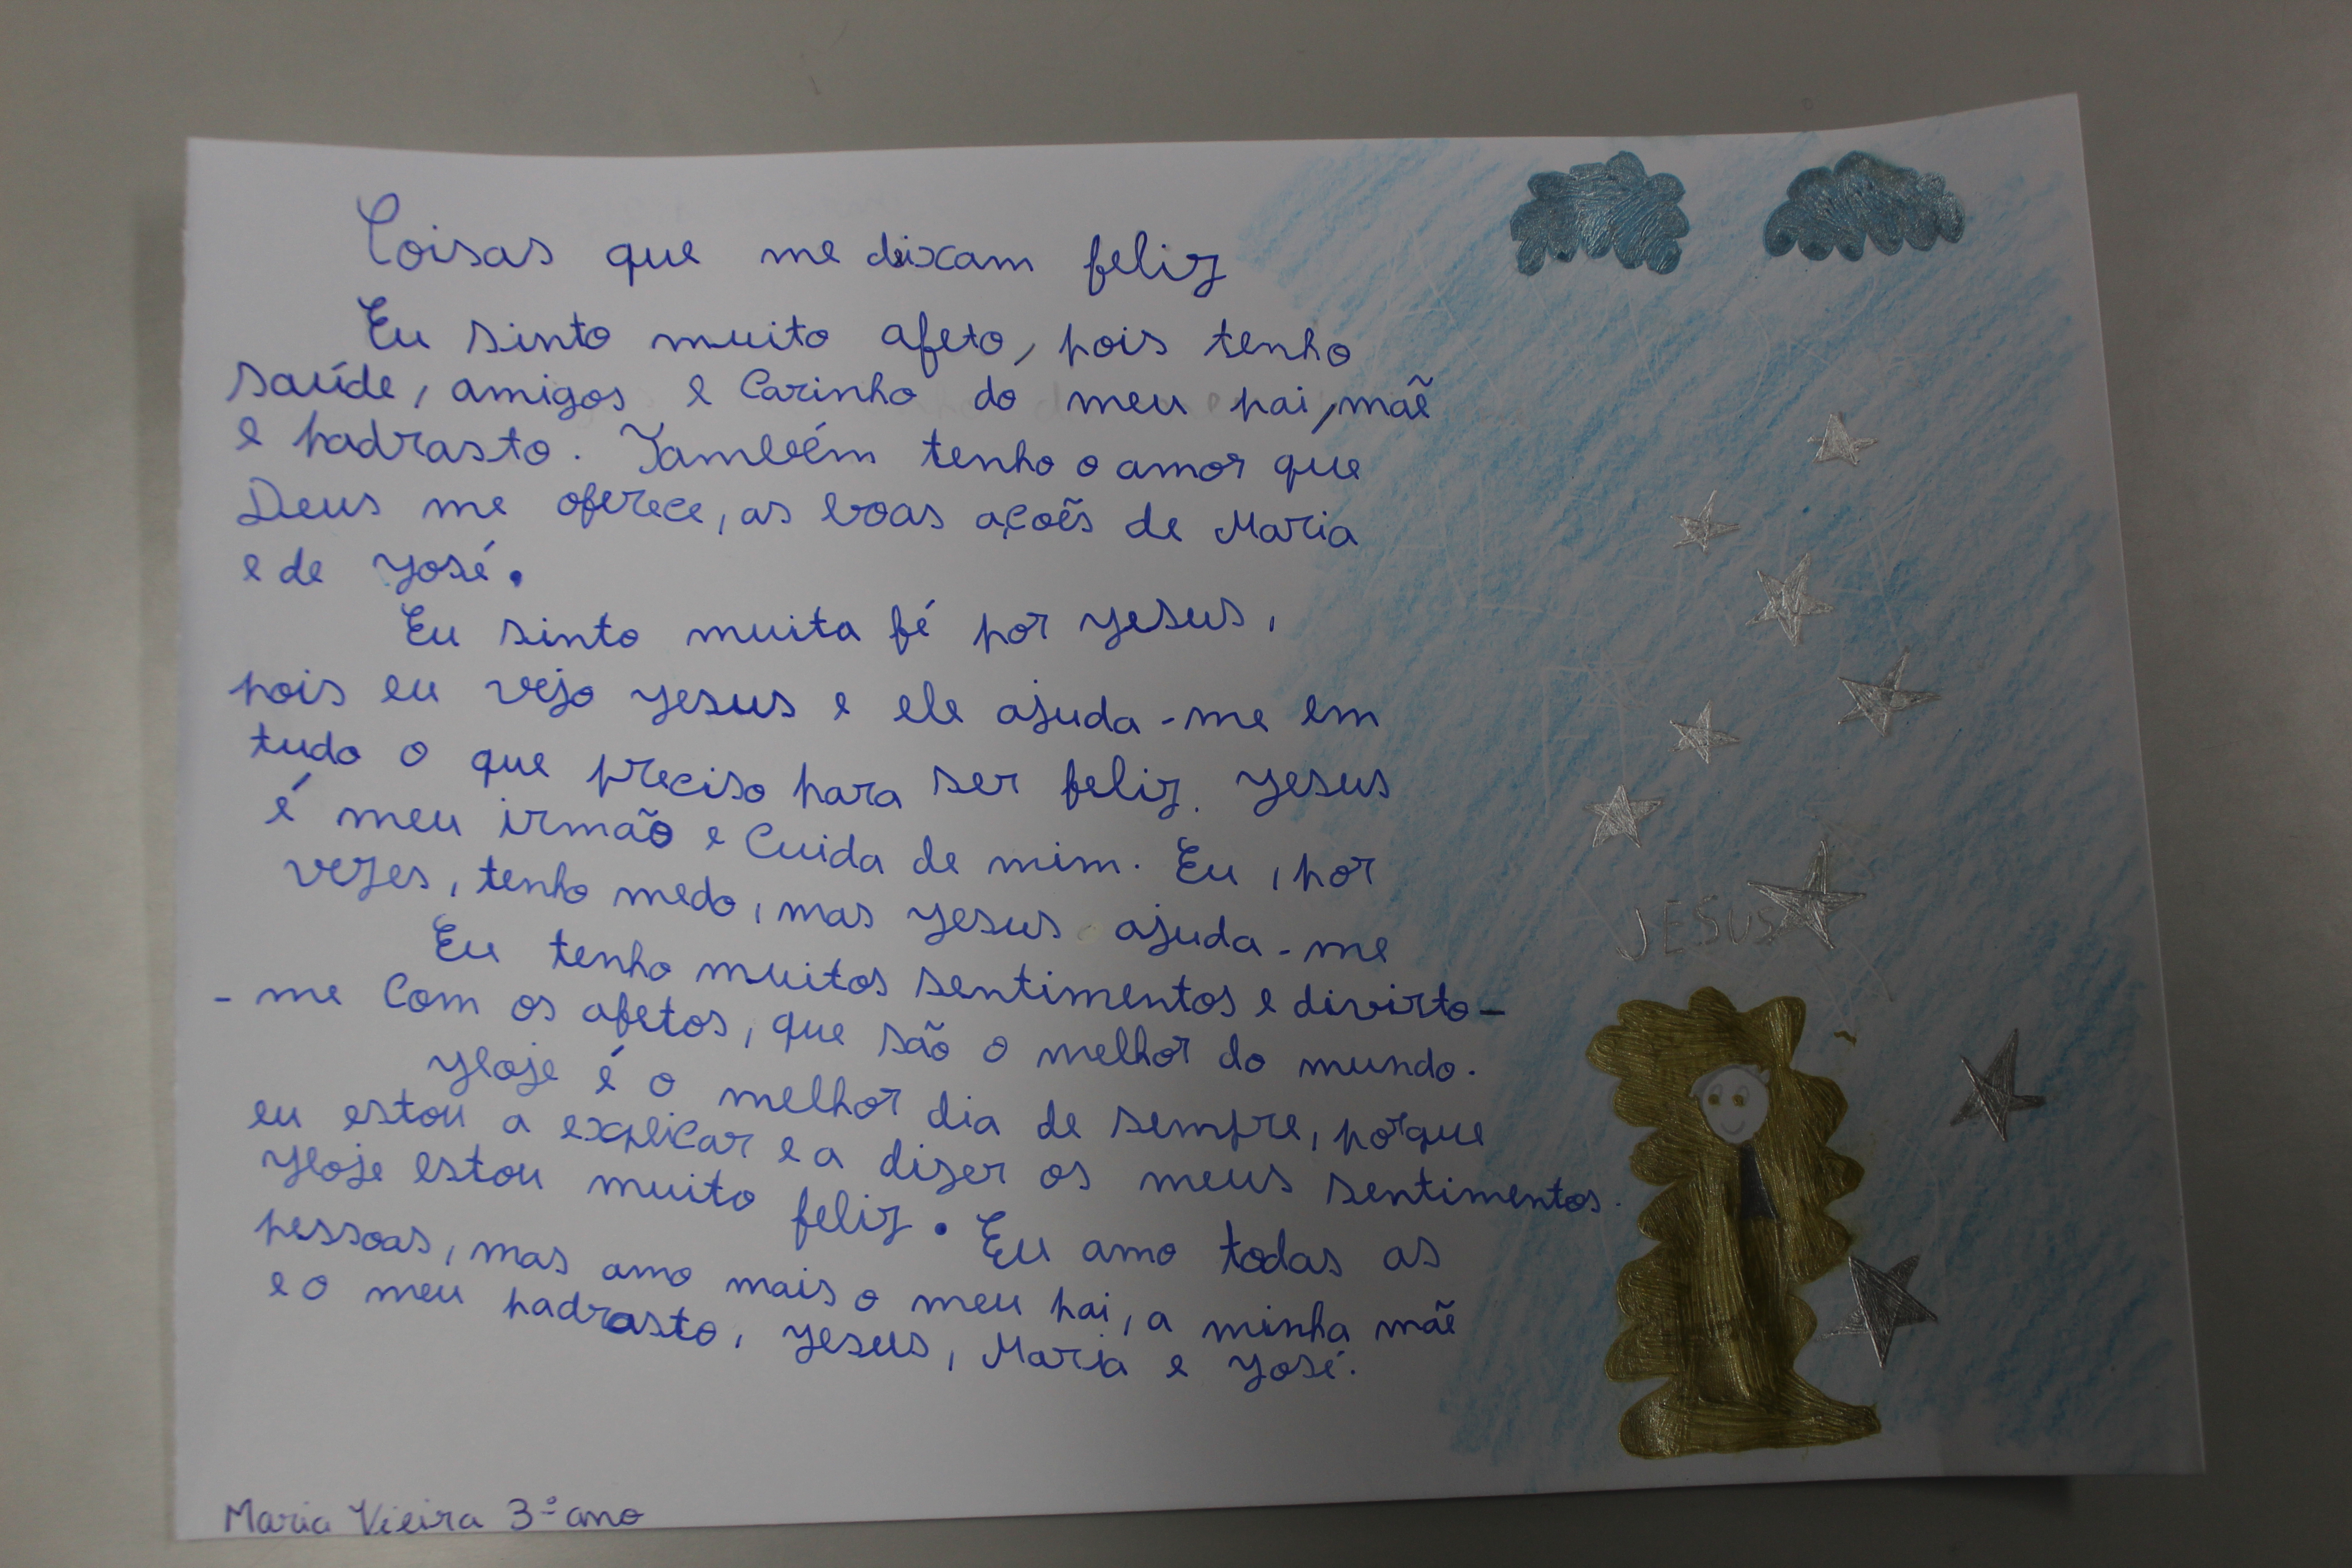 Coisas que me deixam feliz
Eu sinto muito afeto, pois tenho
saúde, amigos e Carinho do meu pai, mãe
e padrasto. Também tenho o amor que
Deus me oferece, as boas açoẽs de Maria
e de José.
Eu sinto muita fé por Jesus,
pois eu vejo Jesus e ele ajuda-me em
tudo o que preciso para ser feliz. Jesus
é meu irmão e Cuida de mim. Eu, por
vezes, tenho medo, mas Jesus ajuda-me
Eu tenho muitos sentimentos e divirto-
-me Com os afetos, que são o melhor do mundo.
Hoje é o melhor dia de sempre, porque
eu estou a explicar e a dizer os meus sentimentos.
Hoje estou muito feliz. Eu amo todas as
pessoas, mas amo mais o meu pai, a minha mãe
e o meu padrasto, Jesus, Maria e José.
Maria Vieira 3º ano
JESUS